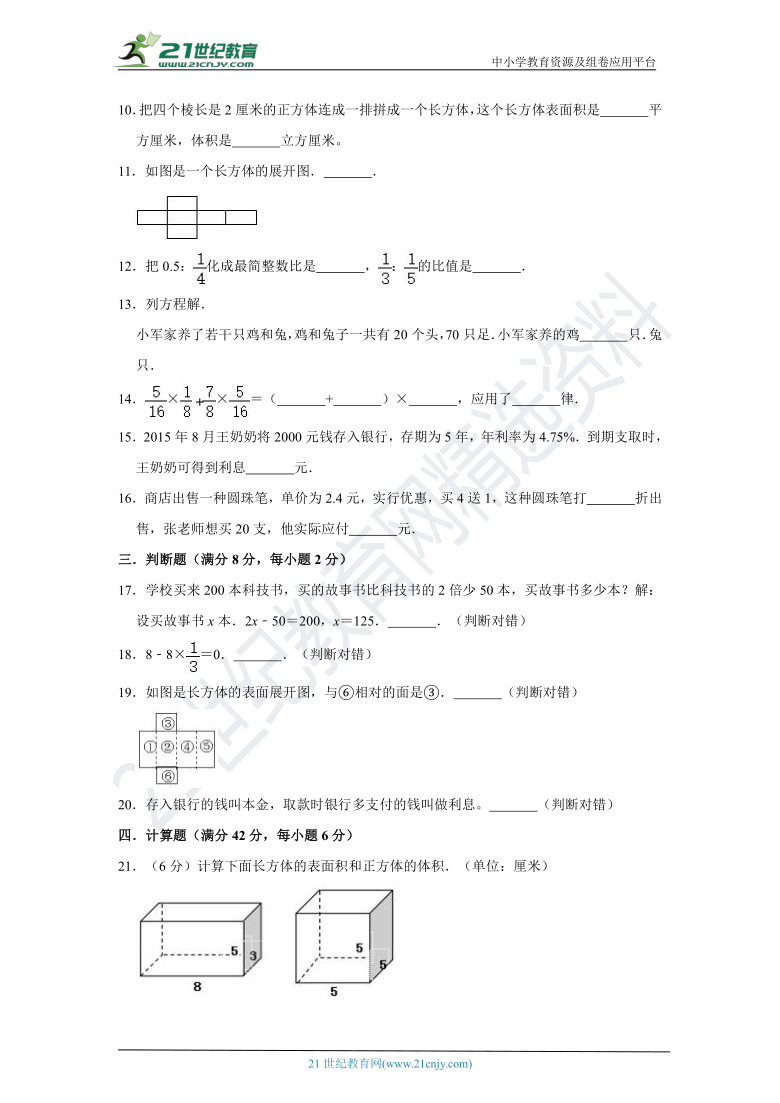 21世纪教育
WWW.21CNJY.COM
中小学教育资源及组卷应用平台
10.把四个棱长是2厘米的正方体连成一排拼成一个长方体,这个长方体表面积是_______平
方厘米,体积是_______立方厘米。
11.如图是一个长方体的展开图._______.
12.把0.5:1/4化成最简整数比是_______,1/3:1/5的比值是_______.
13.列方程解.
小军家养了若干只鸡和兔,鸡和兔子一共有20个头,70只足.小军家养的鸡_______只.兔
只.
14.5/16×1/8+7/8×5/16=(_______+_______)×_______,应用了_______律.
15.2015年8月王奶奶将2000元钱存入银行,存期为5年,年利率为4.75%.到期支取时,
王奶奶可得到利息_______元.
16.商店出售一种圆珠笔,单价为2.4元,实行优惠,买4送1,这种圆珠笔打_______折出
售,张老师想买20支,他实际应付_______元.
三.判断题(满分8分,每小题2分)
17.学校买来200本科技书,买的故事书比科技书的2倍少50本,买故事书多少本?解:
设买故事书x本.2x﹣50=200,x=125._______.(判断对错)
18.8﹣8×1/3=0._______.(判断对错)
19.如图是长方体的表面展开图,与⑥相对的面是③._______(判断对错)
③
① ② ④ ⑤
⑥
20.存入银行的钱叫本金,取款时银行多支付的钱叫做利息。_______(判断对错)
四.计算题(满分42分,每小题6分)
21.(6分)计算下面长方体的表面积和正方体的体积.(单位:厘米)
5 3 8
5 5 5
21世纪教育网精选资料
21世纪教育网(www.21cnjy.com)